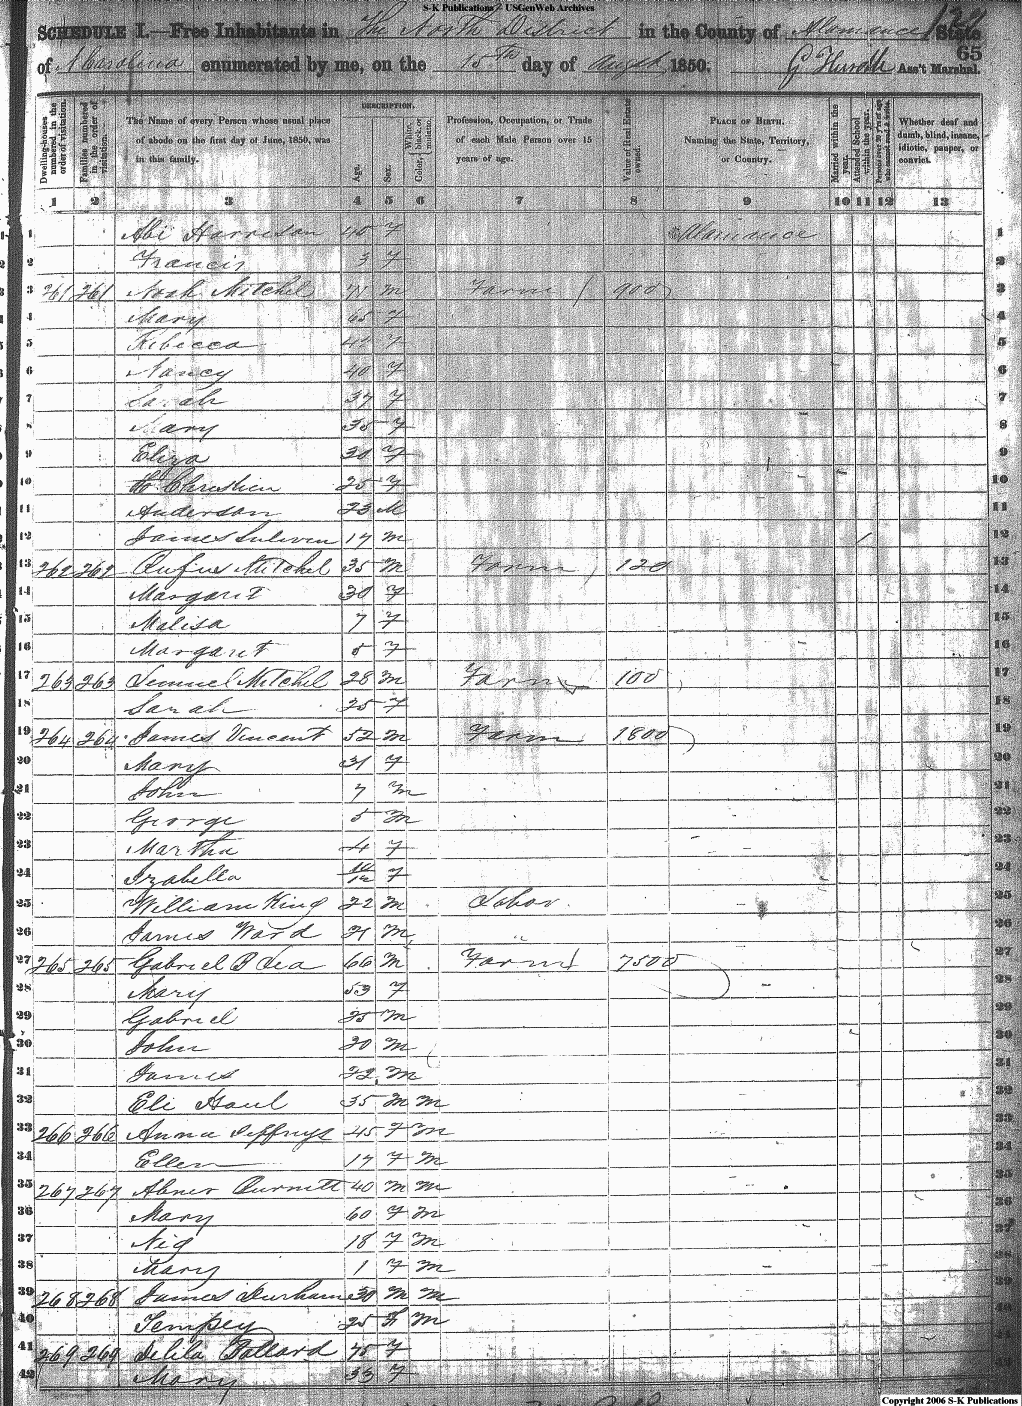 S-K Publications - USGenWeb Archives
122
SCHEDULE I.—Free Inhabitants in The North District in the County of Alamance State
65
of N Carolina enumerated by me, on the 15th day of Augst 1850. Ass't Marshal.
Dwelling-houses numbered in the order of visitation.
Families numbered in the order of visitation.
The Name of every Person whose usual place of abode on the first day of June, 1850, was in this family.
DESCRIPTION.
Age.
Sex.
Color, White, black, or mulatto.
Profession, Occupation, or Trade of each Male Person over 15 years of age.
Value of Real Estate owned.
PLACE OF BIRTH. Naming the State, Territory, or Country.
Married within the year.
Attended School within the year.
Persons over 20 y'rs of age who cannot read & write.
Whether deaf and dumb, blind, insane, idiotic, pauper, or convict.
1 2 3 4 5 6 7 8 9 10 11 12 13
1 Abi Harrison 45 F Alamance 1
2 Francis 3 F 2
3 261 261 Noah Mitchel 71 M Farm 900 3
4 Mary 65 F 4
5 Rebecca 42 F 5
6 Nancy 40 F 6
7 Sarah 37 F 7
8 Mary 35 F 8
9 Eliza 30 F 9
10 Christien 25 F 10
11 Anderson 23 M 11
12 James Suliven 17 M 12
13 262 262 Rufus Mitchel 35 M Farm 120 13
14 Margaret 30 F 14
15 Malisa 7 F 15
16 Margaret 5 F 16
17 263 263 Lemuel Mitchel 28 M Farm 100 17
18 Sarah 25 F 18
19 264 264 James Vincent 52 M Farm 1800 19
20 Mary 31 F 20
21 John 7 M 21
22 George 5 M 22
23 Martha 4 F 23
24 Izabella 10/12 F 24
25 William King 22 M Labor 25
26 James Ward 21 M " 26
27 265 265 Gabriel B Lea 66 M Farm 7500 27
28 Mary 53 F 28
29 Gabriel 25 M 29
30 John 20 M 30
31 James 22 M 31
32 Eli Haul 35 M M 32
33 266 266 Anna Jeffreys 45 F M 33
34 Ellen 17 F M 34
35 267 267 Abner Burnett 40 M M 35
36 Mary 60 F M 36
37 Nig 18 F M 37
38 Mary 1 F M 38
39 268 268 James Durham 30 M M 39
40 Tempey 25 F M 40
41 269 269 Delila Pollard 75 F 41
42 Mary 33 F 42
Copyright 2006 S-K Publications